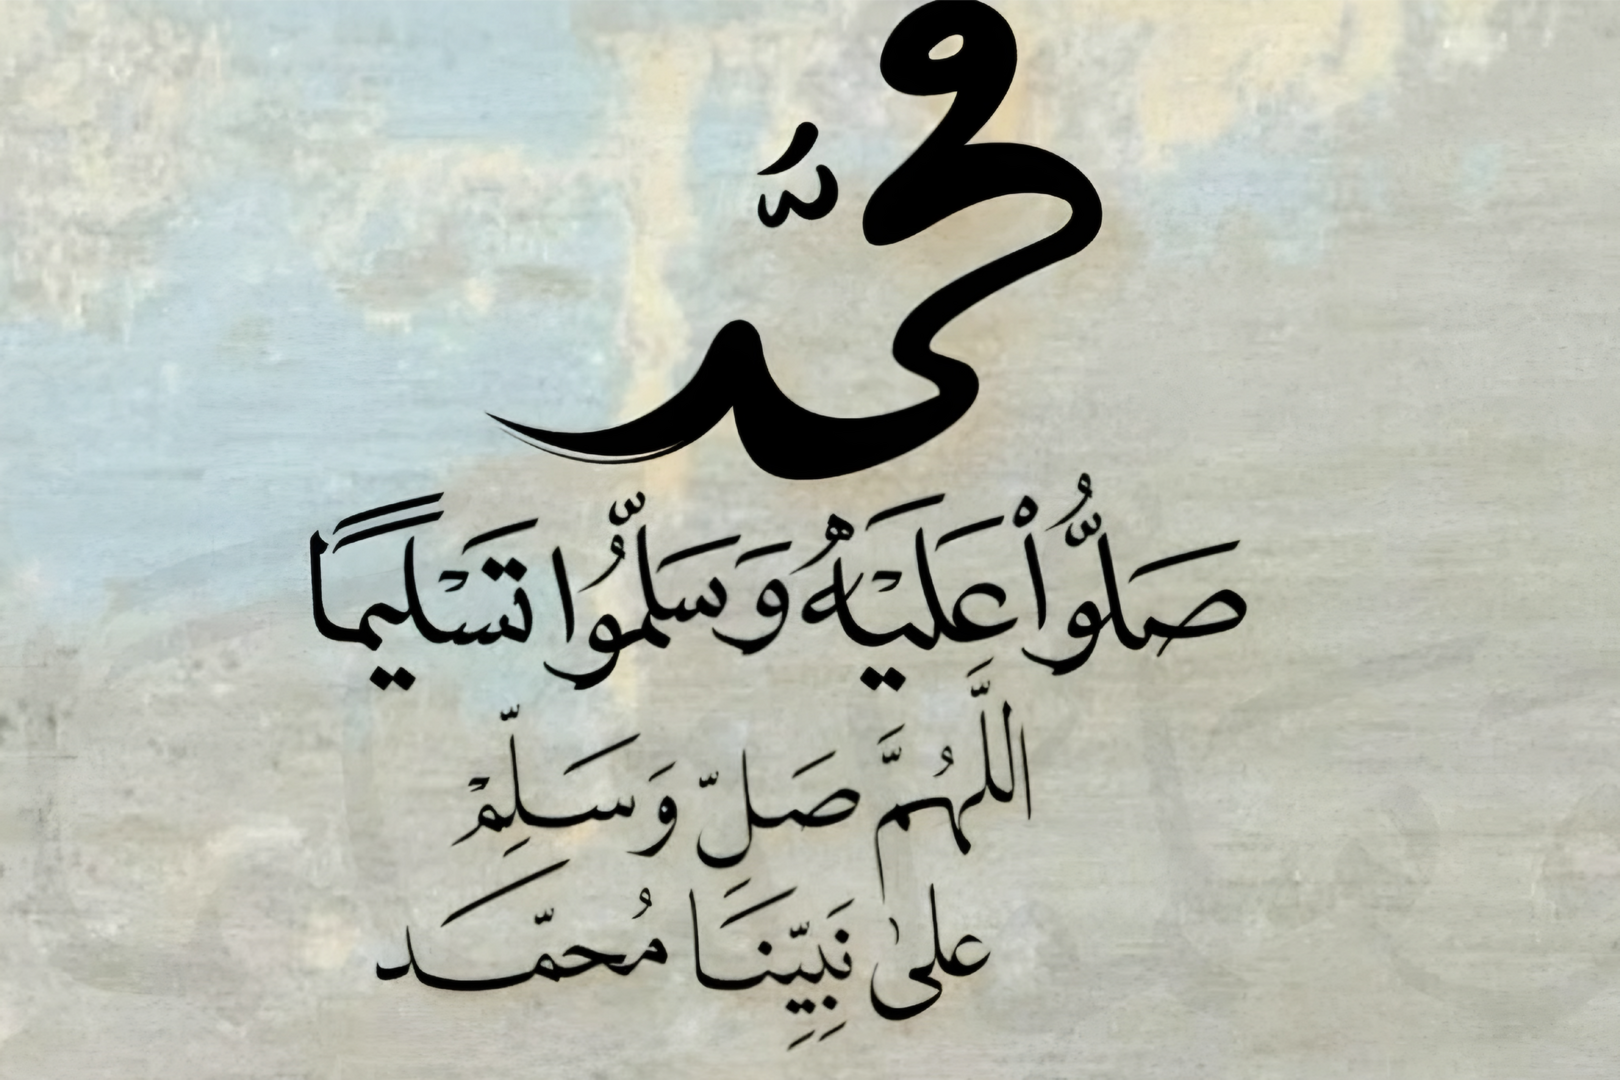 محمَّد
صَلُّواْ عَلَيْهُ وَسَلِّمُوا تَسْلِيمًا
اللَّهُمَّ صَلِّ وَسَلِّمْ
على نَبِيِّنَا مُحمّـَد